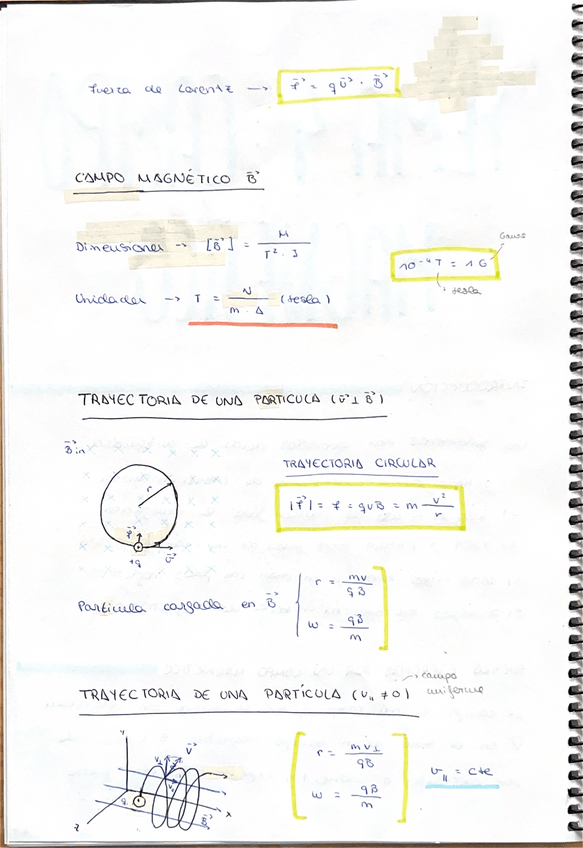 Fuerza de Lorentz → F⃗ = qv⃗ · B⃗
CAMPO MAGNÉTICO B⃗
Dimensiones → [B⃗] = M / T² · I
10⁻⁴ T = 1 G
Gauss
tesla
Unidades → T = N / m · A (tesla)
TRAYECTORIA DE UNA PARTICULA (v⃗ ⊥ B⃗)
B⃗ in
r
F⃗
+q
v⃗
TRAYECTORIA CIRCULAR
|F⃗| = F = qvB = m v² / r
Particula cargada en B⃗
r = mv / qB
w = qB / m
TRAYECTORIA DE UNA PARTÍCULA (v∥ ≠ 0)
campo
uniforme
y
v⃗
x
z
B⃗
r = mv⊥ / qB
w = qB / m
v∥ = cte